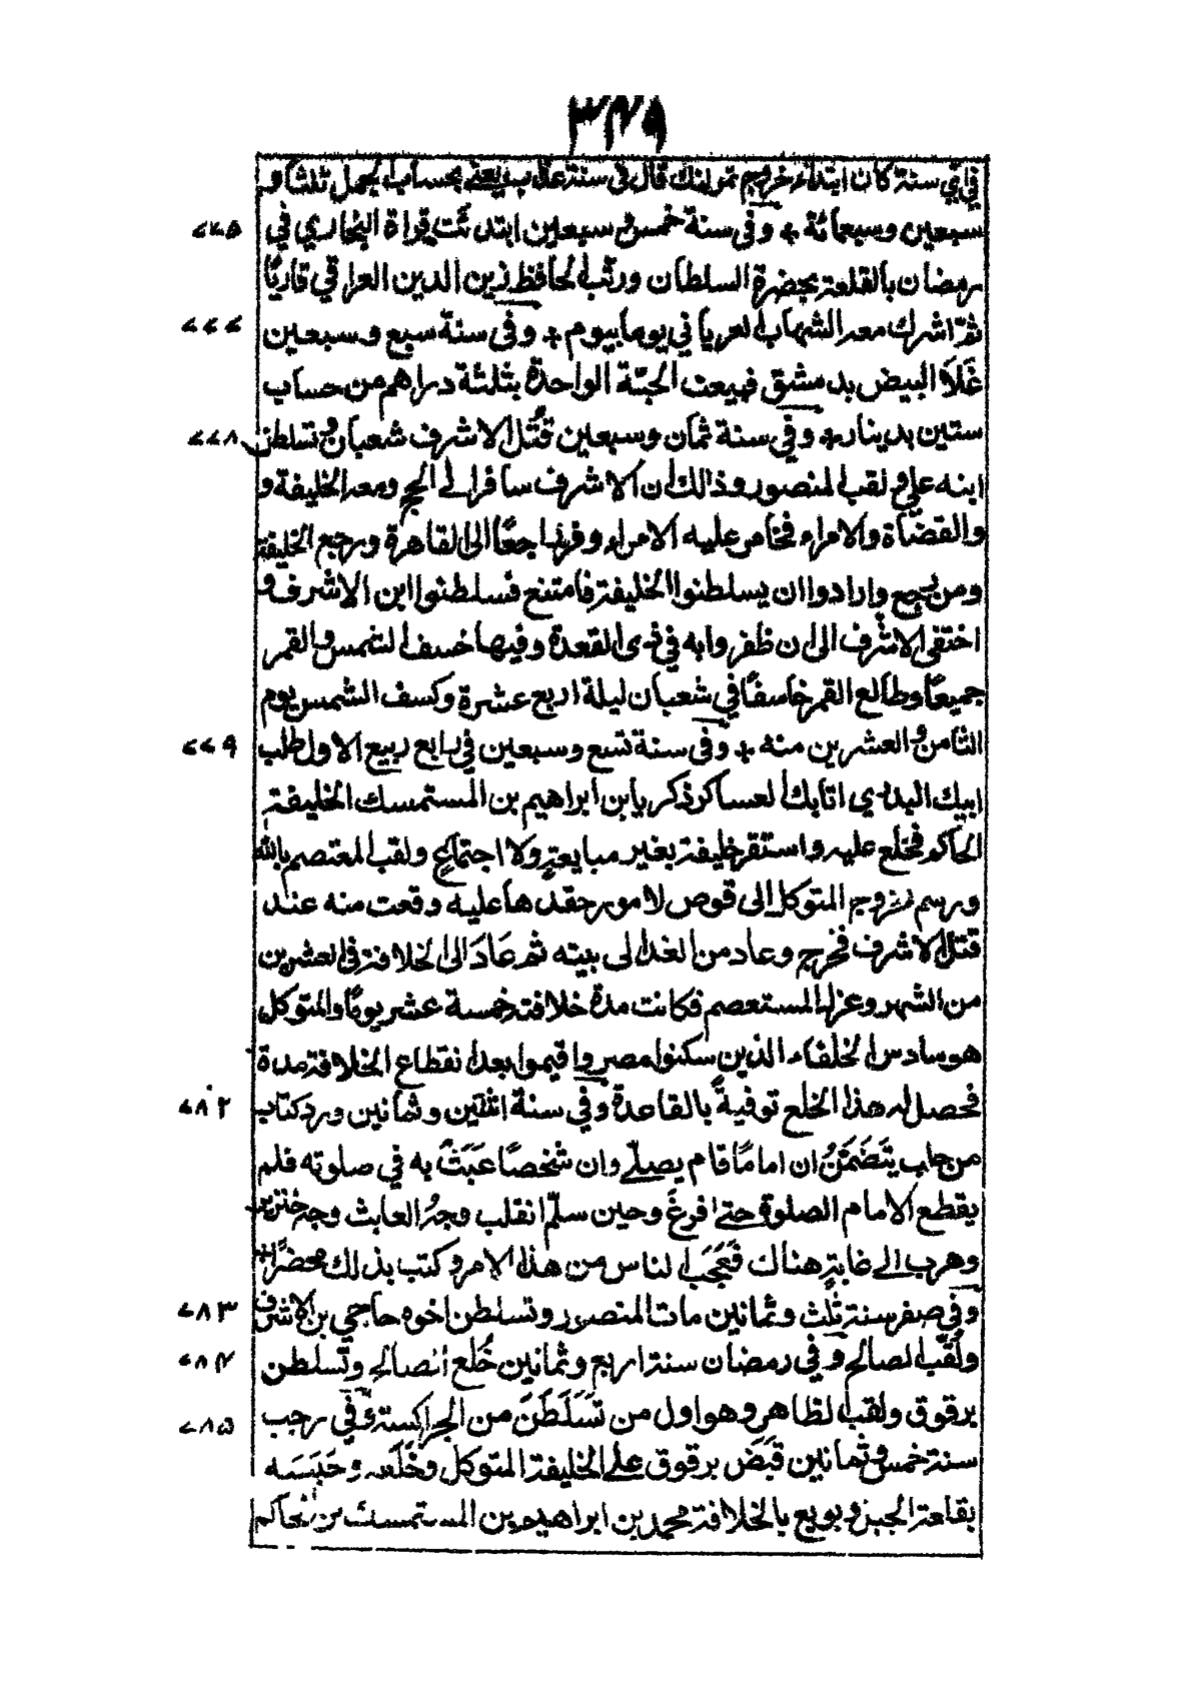 ٣٤٩
في اي سنة كان ابتداء خروج تمرلنك قال في سنة عذاب يعني بحساب الجمل ثلثا و
سبعين وسبعمائة ٭ وفي سنة خمس و سبعين ابتدئت قراة البخاري في ٧٧٥
رمضان بالقلعة بحضرة السلطان ورتب الحافظ زين الدين العراقي قاريًا
ثم اشرك معه الشهاب العرياني يوما بيوم ٭ وفي سنة سبع وسبعين ٧٧٧
غلا البيض بدمشق فبيعت الحبّة الواحدة بثلثة دراهم من حساب
ستين بدينار ٭ وفي سنة ثمان وسبعين قُتل الاشرف شعبان و تسلطن ٧٧٨
ابنه علي و لقب المنصور وذالك ان الاشرف سافر الى الحج ومعه الخليفة و
والقضاة والامراء فخامر عليه الامراء وفر راجعًا الى القاهرة ورجع الخليفة
ومن رجع وارادوا ان يسلطنوا الخليفة فامتنع فسلطنوا ابن الاشرف و
اختفى الاشرف الى ان ظفروا به في ذى القعدة وفيها خسف الشمس والقمر
جميعًا وطالع القمر خاسفًا في شعبان ليلة اربع عشرة وكسف الشمس يوم
الثامن و العشرين منه ٭ وفى سنة تسع وسبعين في رابع ربيع الاول طلب ٧٧٩
ايبك البدري اتابك العساكر ذكريا بن ابراهيم بن المستمسك الخليفة
الحاكم فخلع عليه واستقر خليفة بغير مبايعةٍ ولا اجتماعٍ ولقب المعتصم بالله
ورسم بخروج المتوكل الى قوص لامور حقدها عليه وقعت منه عند
قتل الاشرف فخرج وعاد من الغد الى بيته ثم عَادَ الى الخلافة في العشرين
من الشهر وعزل المستعصم فكانت مدة خلافته خمسة عشر يومًا والمتوكل
هو سادس الخلفاء الذين سكنوا مصر واقيموا بعد انقطاع الخلافة مدة
فحصل له هذا الخلع توفيةً بالقاعدة وفي سنة اثنتين وثمانين ورد كتاب ٧٨٢
من حلب يتضمّنُ ان امامًا قام يصلّي وان شخصًا عَبَثَ به في صلوته فلم
يقطع الامام الصلوة حتى افرغَ وحين سلّم انقلب وجهُ العابث وجه خنزير
وهرب الى غابةٍ هناك فَعَجَبَ الناس من هذا الامر و كتب بذلك محضرًا ٭
وفي صفر سنة ثلث وثمانين مات المنصور وتسلطن اخوه حاجي بن الاشرف ٧٨٣
ولُقّب الصالح و في رمضان سنة اربع وثمانين خُلع الصالح وتسلطن ٧٨٤
برقوق ولقب الظاهر وهو اول من تَسَلطَنَ من الجراكسة و في رجب ٧٨٥
سنة خمس و ثمانين قبَضَ برقوق على الخليفة المتوكل وخَلَعه وحَبَسَه
بقلعة الجبل و بويع بالخلافة محمد بن ابراهيم بن المستمسك بن الحاكم